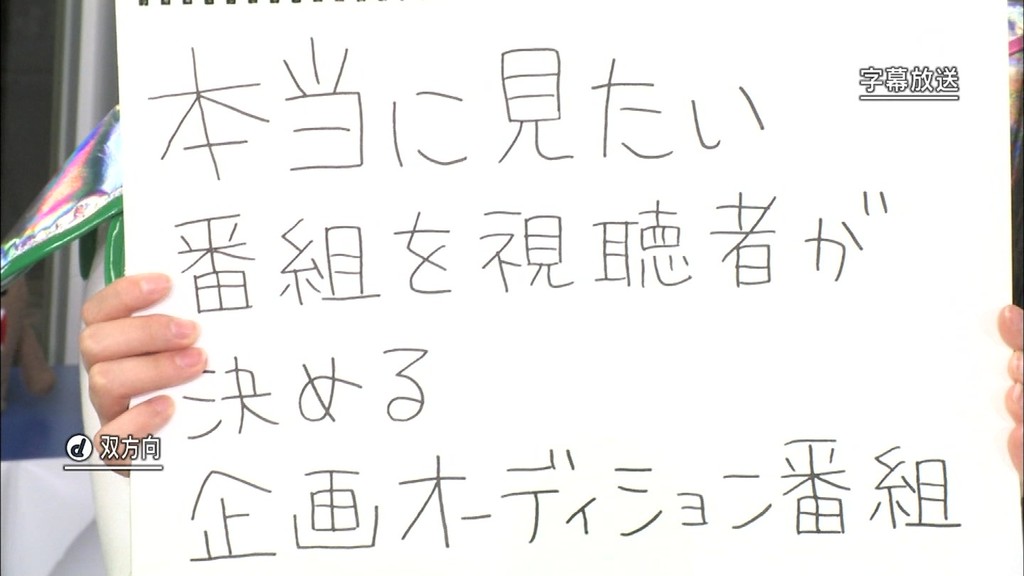 字幕放送
本当に見たい
番組を視聴者が
決める
企画オーディション番組
d 双方向